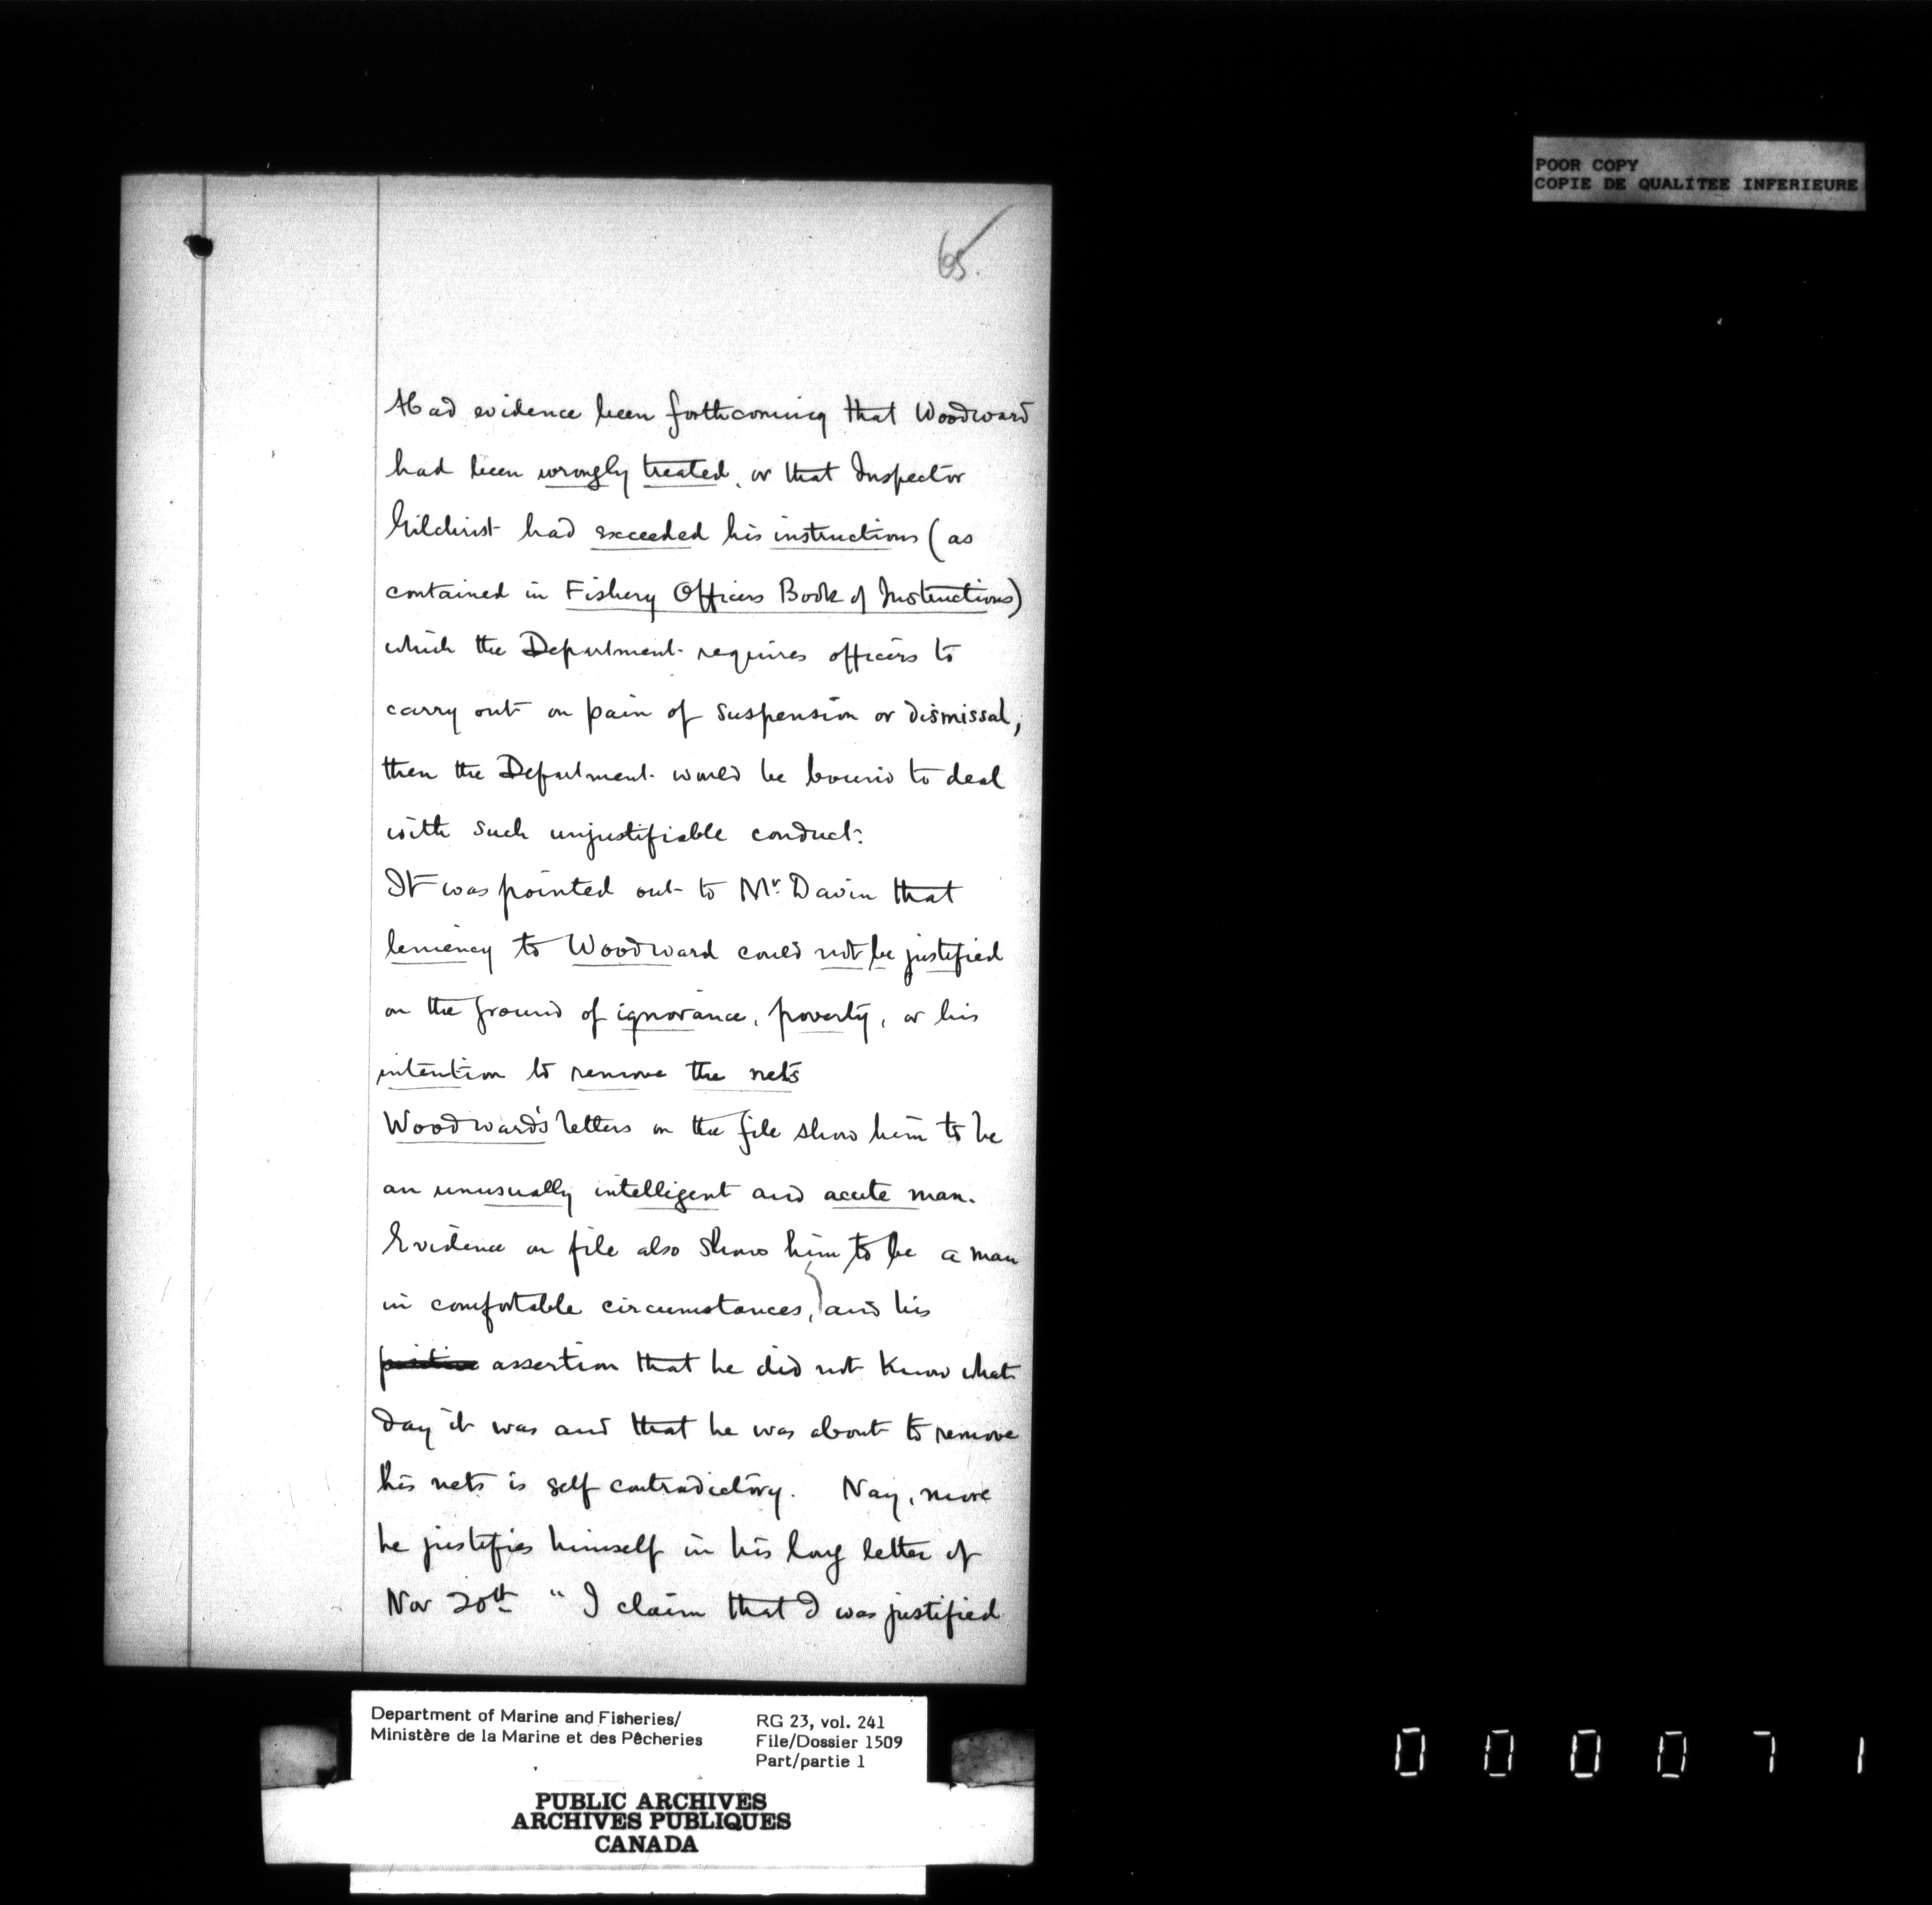 POOR COPY
COPIE DE QUALITEE INFERIEURE
65.
Had evidence been forthcoming that Woodward
had been wrongly treated, or that Inspector
Gilchrist had exceeded his instructions (as
contained in Fishery Officers Book of Instructions)
which the Department requires officers to
carry out on pain of suspension or dismissal,
then the Department would be bound to deal
with such unjustifiable conduct.
It was pointed out to Mr. Davin that
leniency to Woodward could not be justified
on the ground of ignorance, poverty, or his
intention to remove the nets
Woodward's letters on the file show him to be
an unusually intelligent and acute man.
Evidence on file also shows him to be a man
in comfortable circumstances, and his
positive assertion that he did not know what
day it was and that he was about to remove
his nets is self contradictory. Nay, more
he justifies himself in his long letter of
Nov 20th "I claim that I was justified
Department of Marine and Fisheries/
Ministère de la Marine et des Pêcheries
RG 23, vol. 241
File/Dossier 1509
Part/partie 1
PUBLIC ARCHIVES
ARCHIVES PUBLIQUES
CANADA
000071